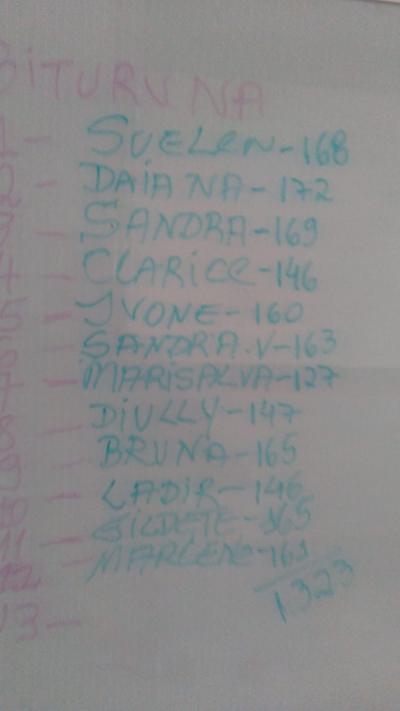 BITURUNA
1- SUELEN-168
2- DAIANA-172
3- SANDRA-169
4- CLARICE-146
5- IVONE-160
6- SANDRA.V-163
7- MARISALVA-127
8- DIULLY-147
9- BRUNA-165
10- LADIR-146
11- GILDETE-165
12- MARLENE-163
13- 1323